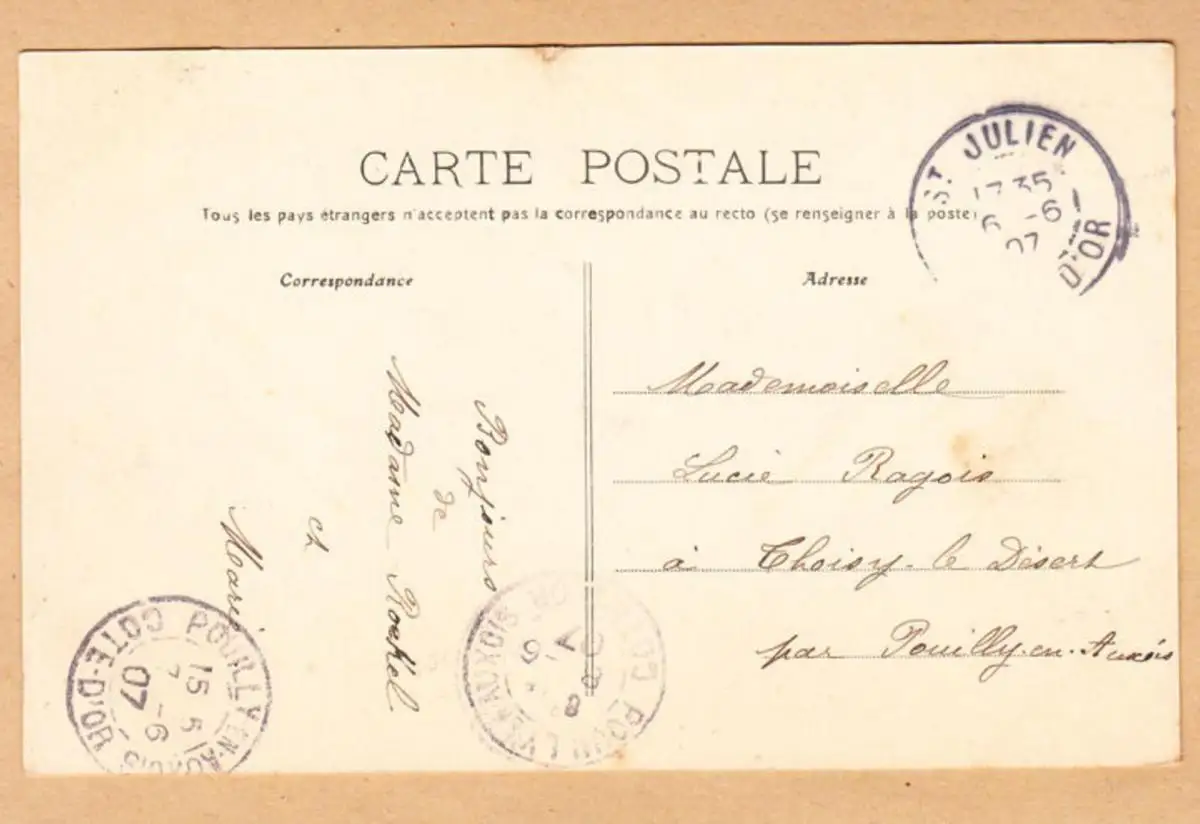 CARTE POSTALE
Tous les pays étrangers n'acceptent pas la correspondance au recto (se renseigner à la poste)
Correspondance
Bonjours
de
Madame Rockel
et
Marie
Adresse
Mademoiselle
Lucie Ragois
à Thoisy-le Désert
par Pouilly-en-Auxois
ST JULIEN
17 35
6 -6
07
D'OR
POUILLY-EN-AUXOIS
15 5
7 -6
07
COTE-D'OR
POUILLY-EN-AUXOIS
COTE-D'OR